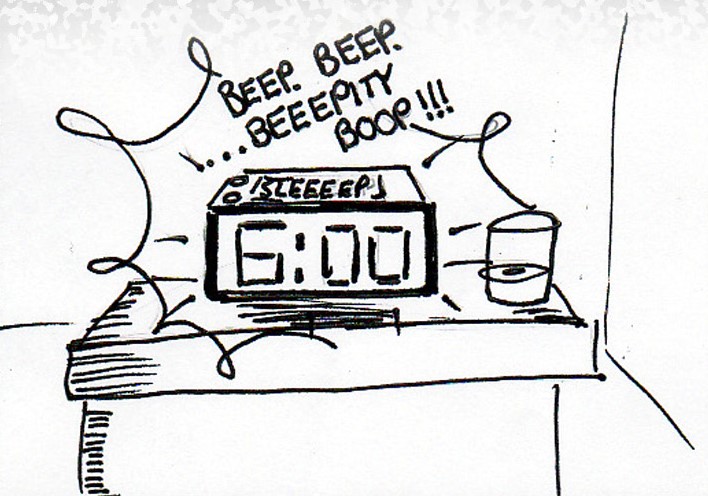 BEEP. BEEP.
....BEEEPITY
BOOP!!!
SLEEEEP!
6:00